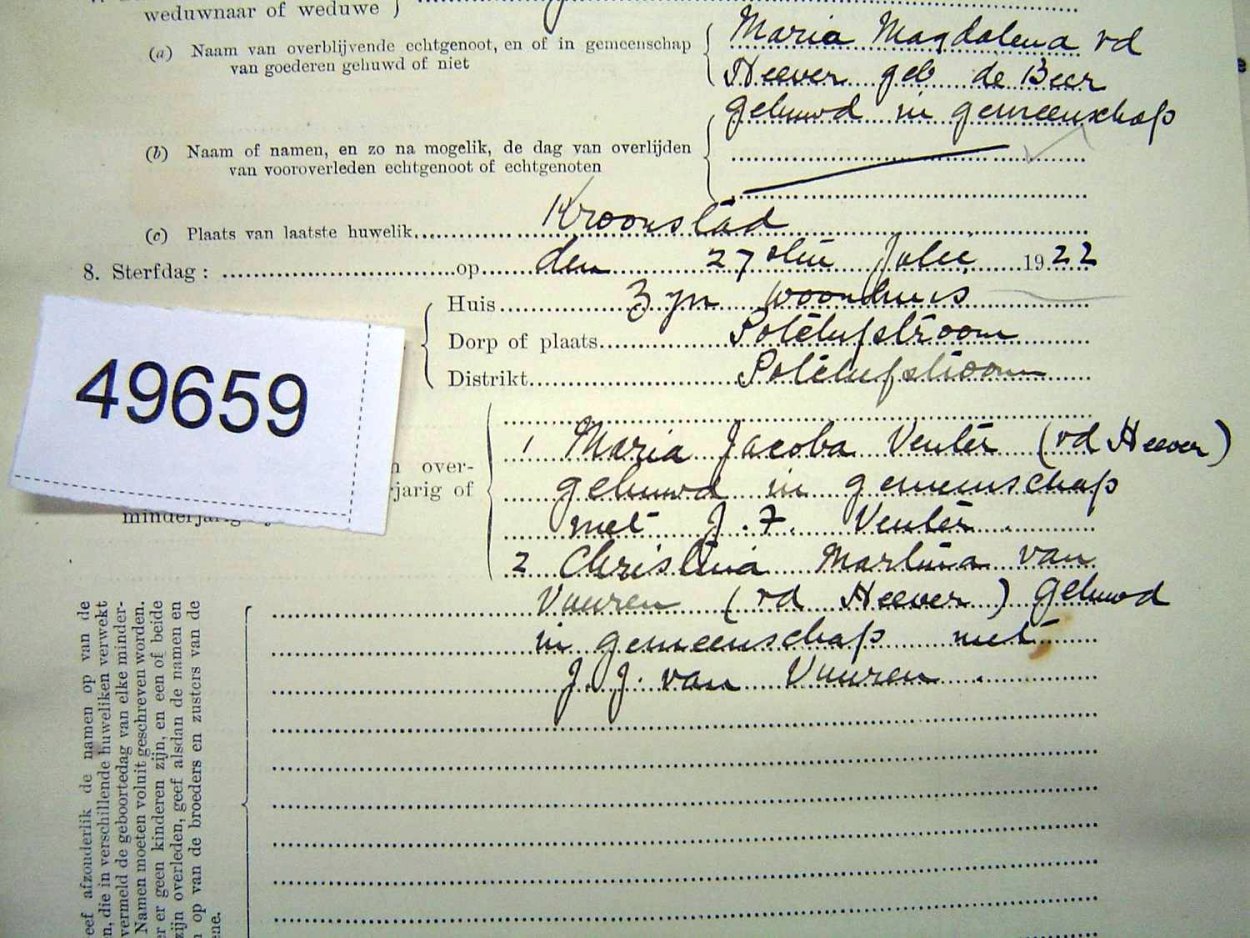 weduwnaar of weduwe
(a) Naam van overblijvende echtgenoot, en of in gemeenschap
van goederen gehuwd of niet
Maria Magdalena vd
Heever geb de Beer
gehuwd in gemeenschap
(b) Naam of namen, en zo na mogelik, de dag van overlijden
van vooroverleden echtgenoot of echtgenoten
(c) Plaats van laatste huwelik Kroonstad
8. Sterfdag: op den 27sten Julie 1922
Huis Zyn woonhuis
Dorp of plaats Potchefstroom
Distrikt Potchefstroom
49659
over-
jarig of
minderjarig
1 Maria Jacoba Venter (vd Heever)
gehuwd in gemeenschap
met J. F. Venter.
2 Christina Martina van
Vuuren (vd Heever) gehuwd
in gemeenschap met
J. J. van Vuuren.
eef afzonderlik de namen op van de
n, die in verschillende huweliken verwekt
vermeld de geboortedag van elke minder-
Namen moeten voluit geschreven worden.
er geen kinderen zijn, en een of beide
zijn overleden, geef alsdan de namen en
op van de broeders en zusters van de
ene.